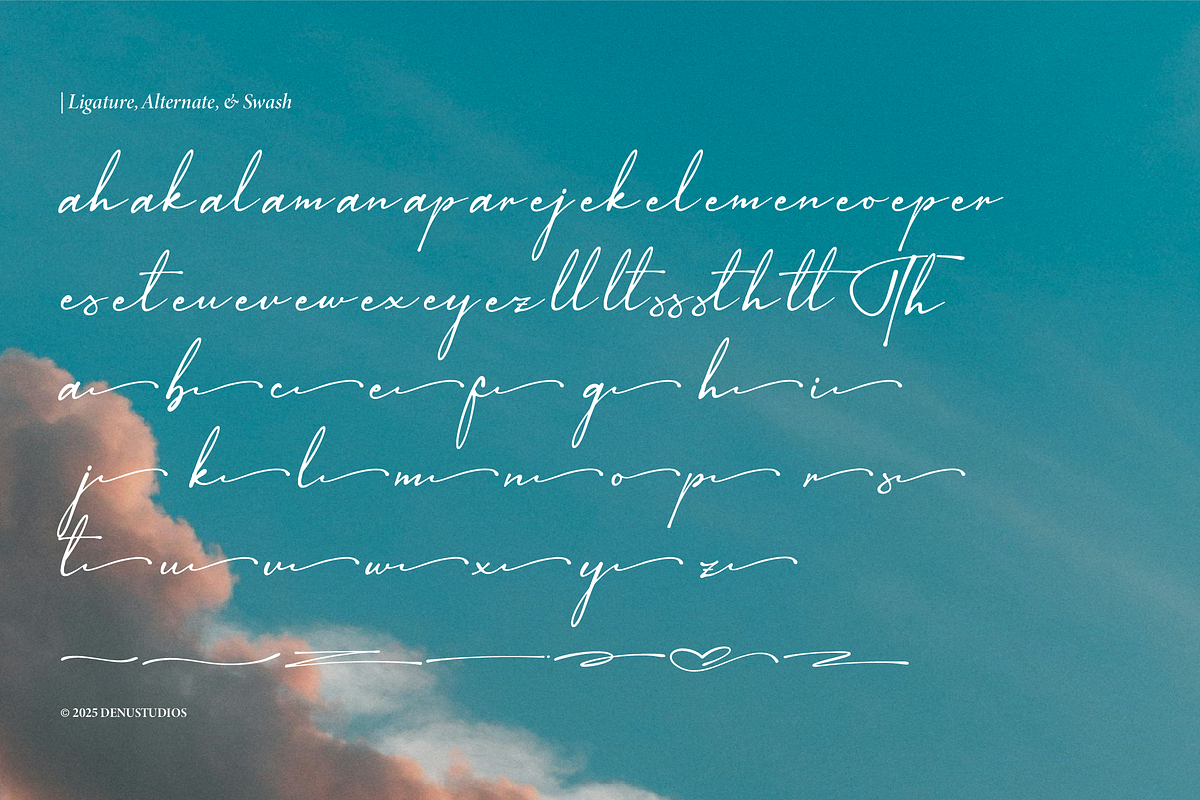 | Ligature, Alternate, & Swash
ah ak al am an ap ar ej ek el em en eo ep er
es et eu ev ew ex ey ez ll lt ss st th tt Th
a b c e f g h i
j k l m n o p r s
t u v w x y z
© 2025 DENUSTUDIOS